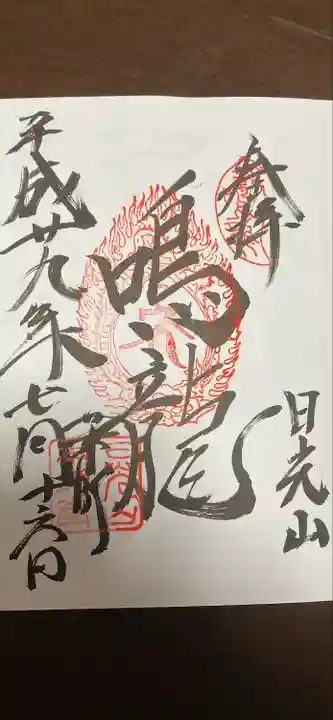 奉拝
日光山
鳴龍
薬師堂
平成廿九年七月十六日